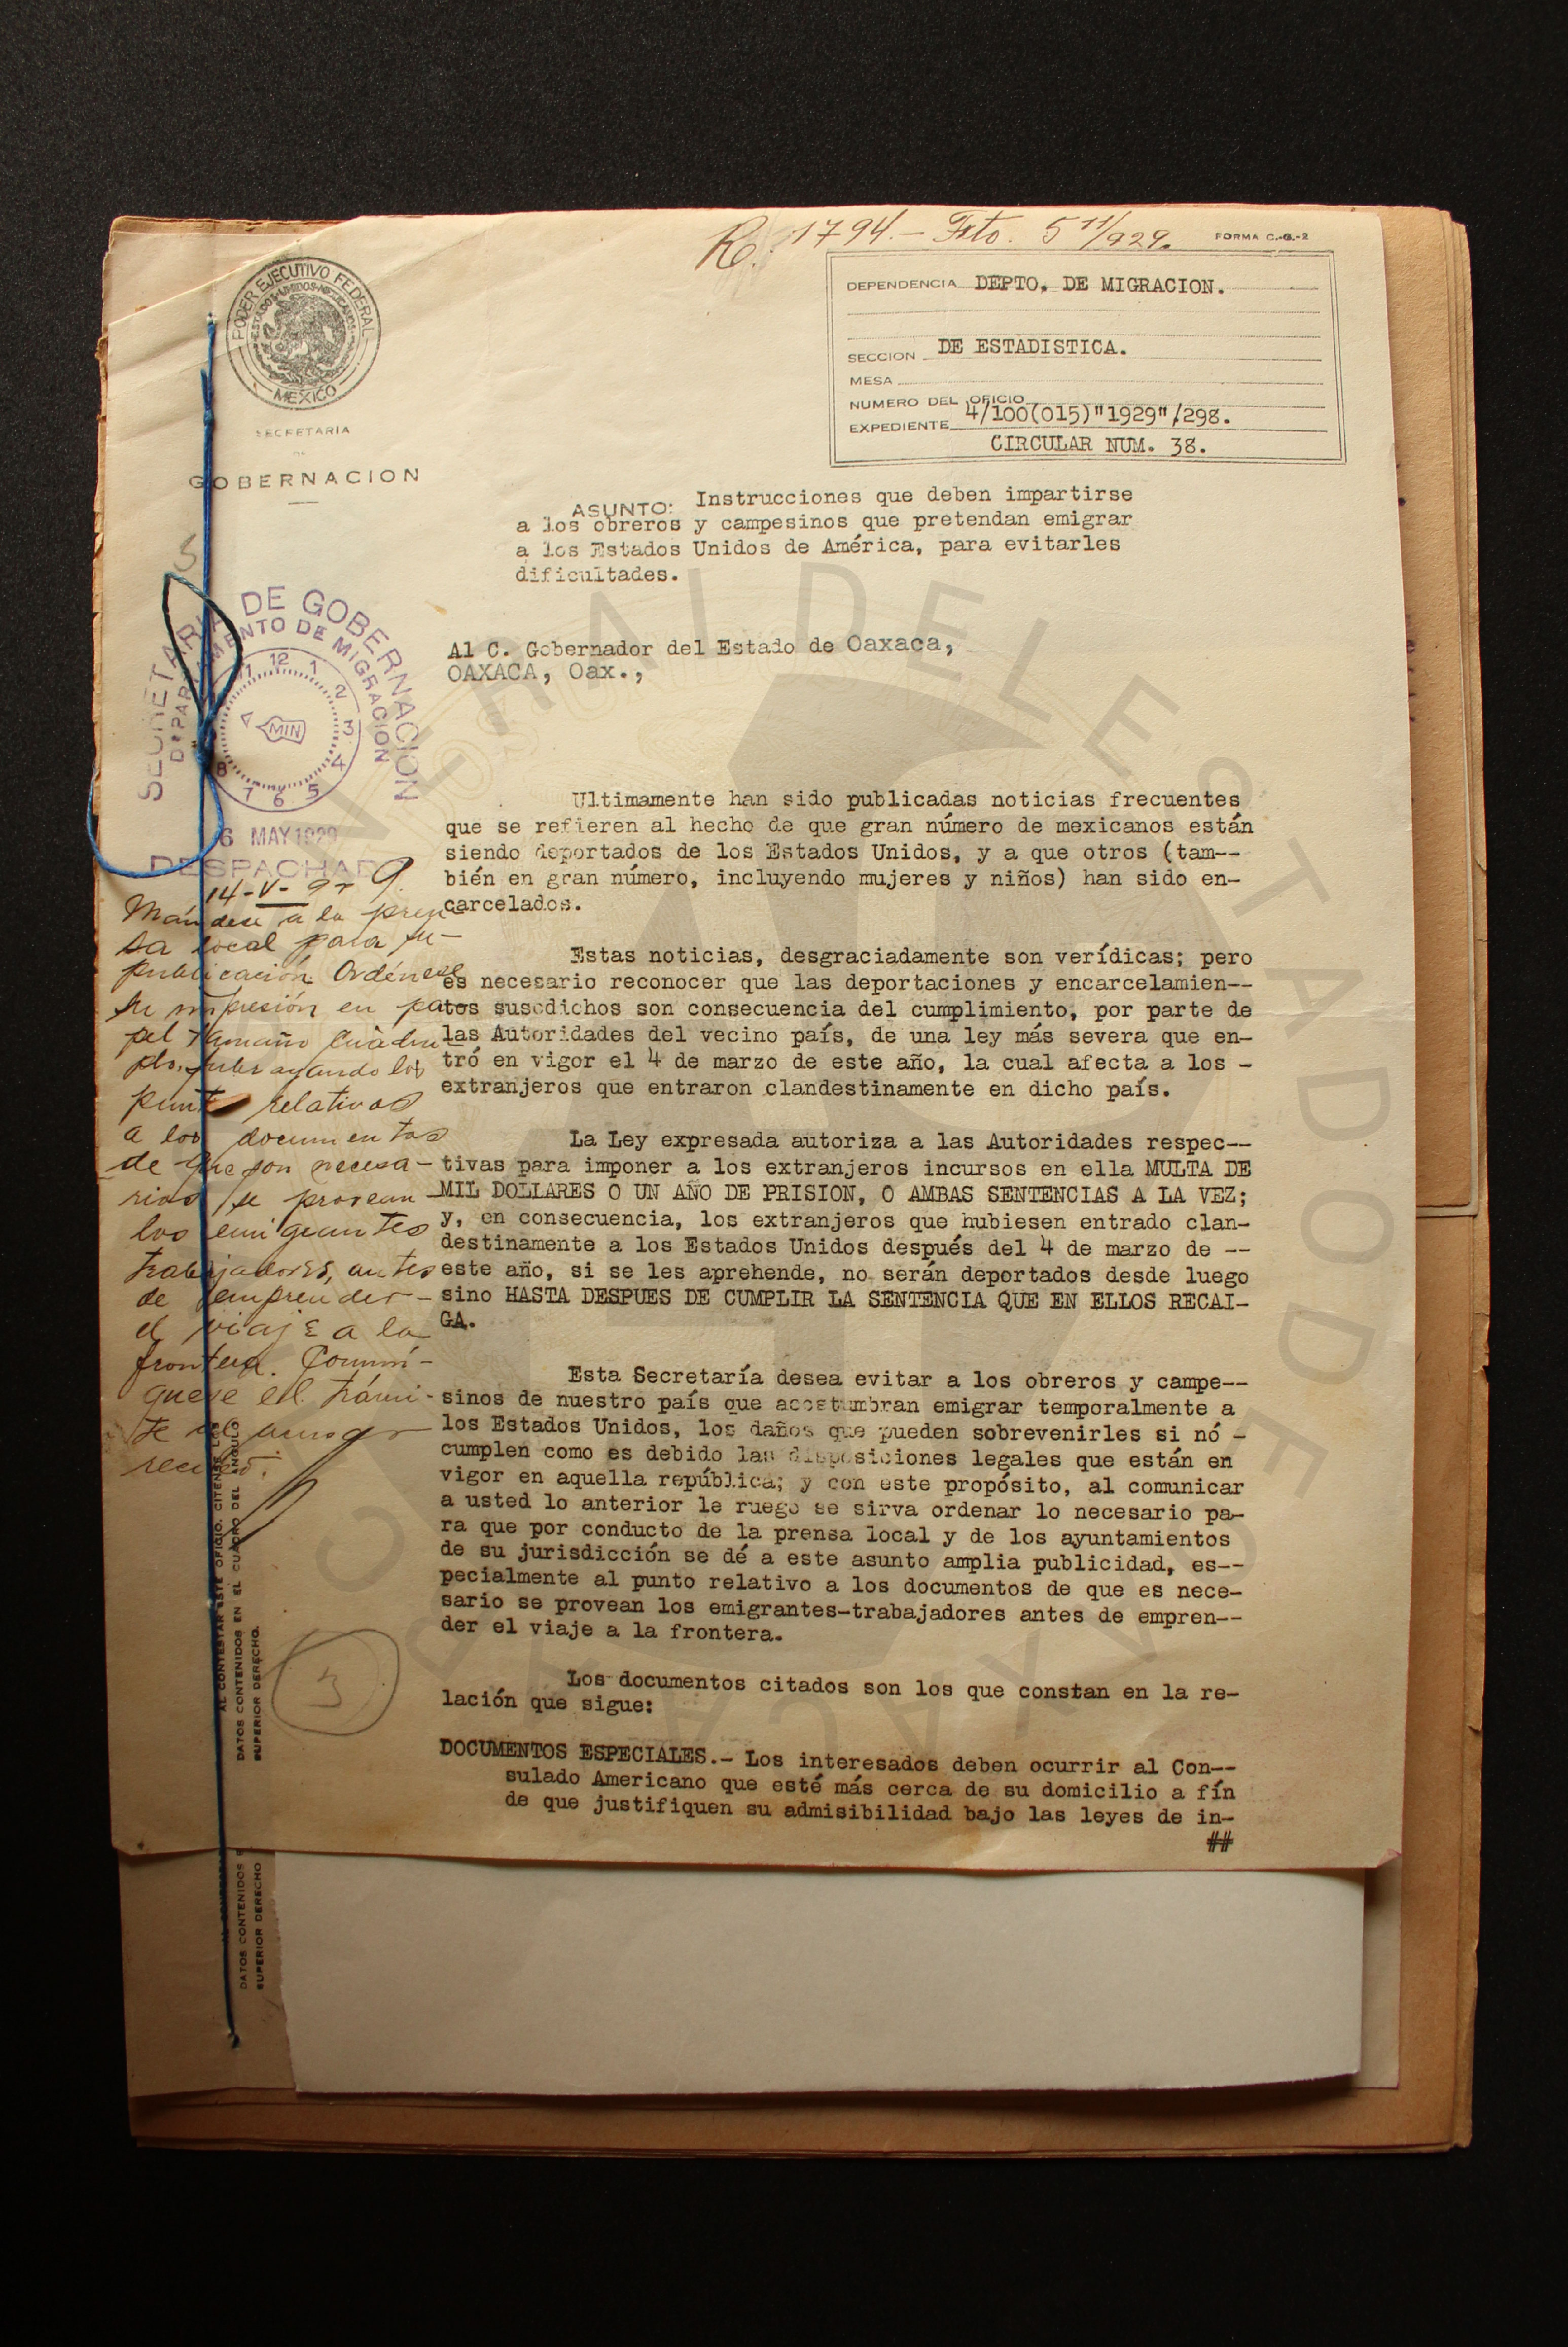 R. 1794.- Fto. 5 11/929.
FORMA C.-G.-2
PODER EJECUTIVO FEDERAL
ESTADOS UNIDOS MEXICANOS
MEXICO
SECRETARIA
DE
GOBERNACION
DEPENDENCIA DEPTO. DE MIGRACION.
SECCION DE ESTADISTICA.
MESA
NUMERO DEL OFICIO
EXPEDIENTE 4/100(015)"1929"/298.
CIRCULAR NUM. 38.
ASUNTO: Instrucciones que deben impartirse
a los obreros y campesinos que pretendan emigrar
a los Estados Unidos de América, para evitarles
dificultades.
SECRETARIA DE GOBERNACION
DEPARTAMENTO DE MIGRACION
12 1 2 3 4 5 6 7 8 11
MIN
6 MAY 1929
DESPACHAD
Al C. Gobernador del Estado de Oaxaca,
OAXACA, Oax.,
Ultimamente han sido publicadas noticias frecuentes
que se refieren al hecho de que gran número de mexicanos están
siendo deportados de los Estados Unidos, y a que otros (tam--
bién en gran número, incluyendo mujeres y niños) han sido en-
carcelados.
Estas noticias, desgraciadamente son verídicas; pero
es necesario reconocer que las deportaciones y encarcelamien--
tos susodichos son consecuencia del cumplimiento, por parte de
las Autoridades del vecino país, de una ley más severa que en-
tró en vigor el 4 de marzo de este año, la cual afecta a los -
extranjeros que entraron clandestinamente en dicho país.
La Ley expresada autoriza a las Autoridades respec--
tivas para imponer a los extranjeros incursos en ella MULTA DE
MIL DOLLARES O UN AÑO DE PRISION, O AMBAS SENTENCIAS A LA VEZ;
y, en consecuencia, los extranjeros que hubiesen entrado clan-
destinamente a los Estados Unidos después del 4 de marzo de --
este año, si se les aprehende, no serán deportados desde luego
sino HASTA DESPUES DE CUMPLIR LA SENTENCIA QUE EN ELLOS RECAI-
GA.
Esta Secretaría desea evitar a los obreros y campe--
sinos de nuestro país que acostumbran emigrar temporalmente a
los Estados Unidos, los daños que pueden sobrevenirles si nó -
cumplen como es debido las disposiciones legales que están en
vigor en aquella república; y con este propósito, al comunicar
a usted lo anterior le ruego se sirva ordenar lo necesario pa-
ra que por conducto de la prensa local y de los ayuntamientos
de su jurisdicción se dé a este asunto amplia publicidad, es--
pecialmente al punto relativo a los documentos de que es nece-
sario se provean los emigrantes-trabajadores antes de empren--
der el viaje a la frontera.
Los documentos citados son los que constan en la re-
lación que sigue:
DOCUMENTOS ESPECIALES.- Los interesados deben ocurrir al Con--
sulado Americano que esté más cerca de su domicilio a fín
de que justifiquen su admisibilidad bajo las leyes de in-
##
14-V-929.
Mándese a la pren-
sa local para su
publicación Ordénese
su impresión en pa
pel tamaño
subrayando los
puntos relativos
a los documentos
de que son necesa-
rios se provean
los emigrantes
trabajadores, antes
de emprender
el viaje a la
frontera. Comuní-
quese el trámi-
te
recibo.
3
AL CONTESTAR ESTE OFICIO, CITENSE LOS
DATOS CONTENIDOS EN EL CUADRO DEL ANGULO
SUPERIOR DERECHO.
DATOS CONTENIDOS E
SUPERIOR DERECHO